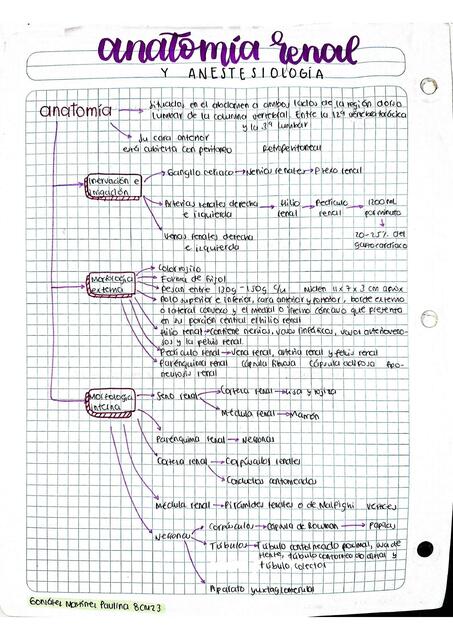 anatomía renal
Y ANESTESIOLOGÍA
anatomía → Situados en el abdomen a ambos lados de la región dorso
lumbar de la columna vertebral. Entre la 12ª vértebra torácica
y la 3ª lumbar
Su cara anterior
está cubierta con peritoneo Retroperitoneal
Inervación e
irrigación
Ganglio celiaco → Nervios renales → Plexo renal
Arterias renales derecha → Hilio → Pedículo → 1200 mL
e izquierda renal renal por minuto
Venas renales derecha 20-25% del
e izquierda gasto cardiaco
Morfología
externa
Color rojizo
Forma de frijol
Pesan entre 120g - 150g c/u Miden 11 x 7 x 3 cm aprox
Polo superior e inferior, cara anterior y posterior, borde externo
o lateral convexo y el medial o interno cóncavo que presenta
en su porción central el hilio renal
Hilio renal → contiene nervios, vasos linfáticos, vasos arteriovenosos
y la pelvis renal.
Pedículo renal → Vena renal, arteria renal y pelvis renal
Parénquima renal Cápsula fibrosa Cápsula adiposa Apo-
neurosis renal
Morfología
interna
Seno renal → Corteza renal → Lisa y rojiza
Médula renal → Marrón
Parénquima renal → Nefronas
Corteza renal → Corpúsculos renales
Conductos contorneados
Médula renal → Pirámides renales o de Malpighi Vértices
Nefronas → Corpúsculos → Cápsula de Bowman → Papilas
Túbulos → Túbulo contorneado proximal, asa de
Henle, túbulo contorneado distal y
túbulo colector
Aparato yuxtaglomerular
González Martínez Paulina 8CM23